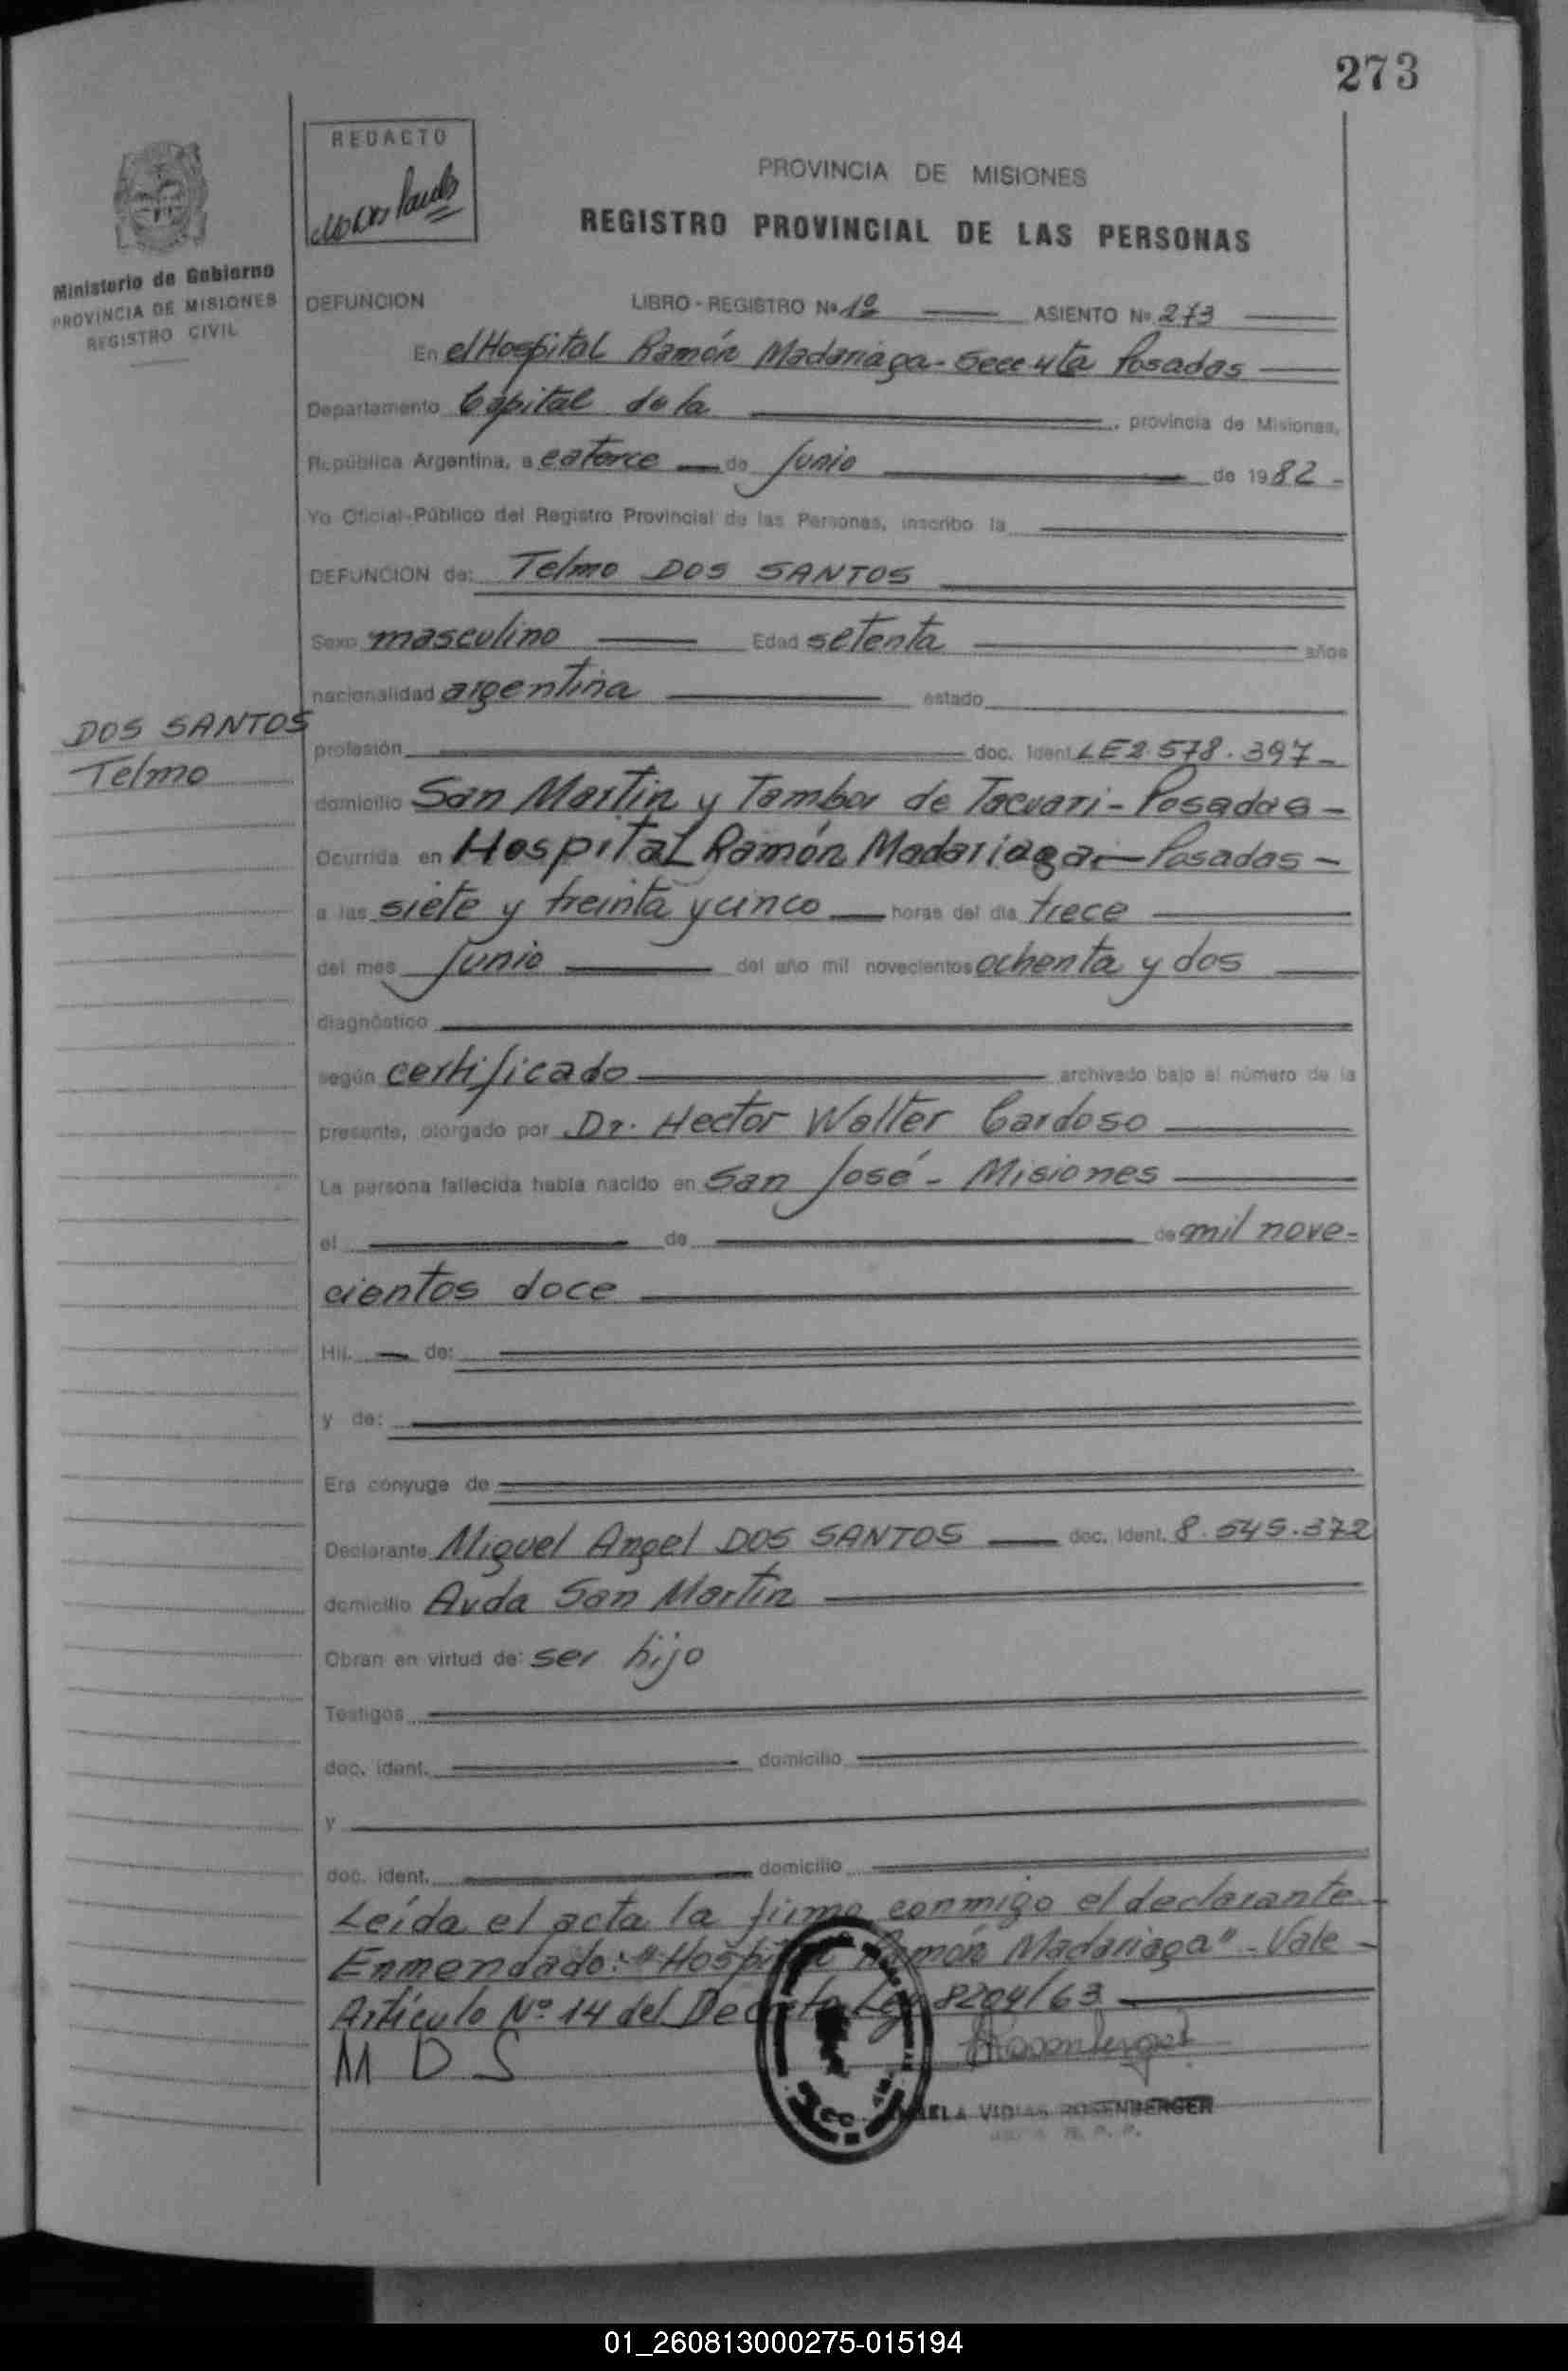 273
REDACTO
PROVINCIA DE MISIONES
REGISTRO PROVINCIAL DE LAS PERSONAS
Ministerio de Gobierno
PROVINCIA DE MISIONES
REGISTRO CIVIL
DEFUNCION LIBRO-REGISTRO No 1º ASIENTO No 273
En el Hospital Ramón Madariaga - Secc 4ta Posadas
Departamento Capital de la , provincia de Misiones,
República Argentina, a catorce de Junio de 1982 -
Yo Oficial Público del Registro Provincial de las Personas, inscribo la
DEFUNCION de: Telmo DOS SANTOS
Sexo masculino Edad setenta años
nacionalidad argentina estado
DOS SANTOS
Telmo
profesión doc. Ident. LE 2.578.397 -
domicilio San Martin y Tambor de Tacuari - Posadas -
Ocurrida en Hospital Ramón Madariaga - Posadas -
a las siete y treinta y cinco horas del día trece
del mes Junio del año mil novecientos ochenta y dos
diagnóstico
según certificado archivado bajo el número de la
presente, otorgado por Dr. Hector Walter Cardoso
La persona fallecida había nacido en San José - Misiones
el de de mil nove-
cientos doce
Hij. de:
y de:
Era cónyuge de
Declarante Miguel Angel DOS SANTOS doc. Ident. 8.545.372
domicilio Avda San Martin
Obran en virtud de: ser hijo
Testigos
doc. ident. domicilio
y
doc. ident. domicilio
Leída el acta la firma conmigo el declarante -
Enmendado: "Hospital Ramón Madariaga" - Vale -
Artículo Nº 14 del Decreto Ley 8204/63
M D S
ROSENBERGER
01_260813000275-015194